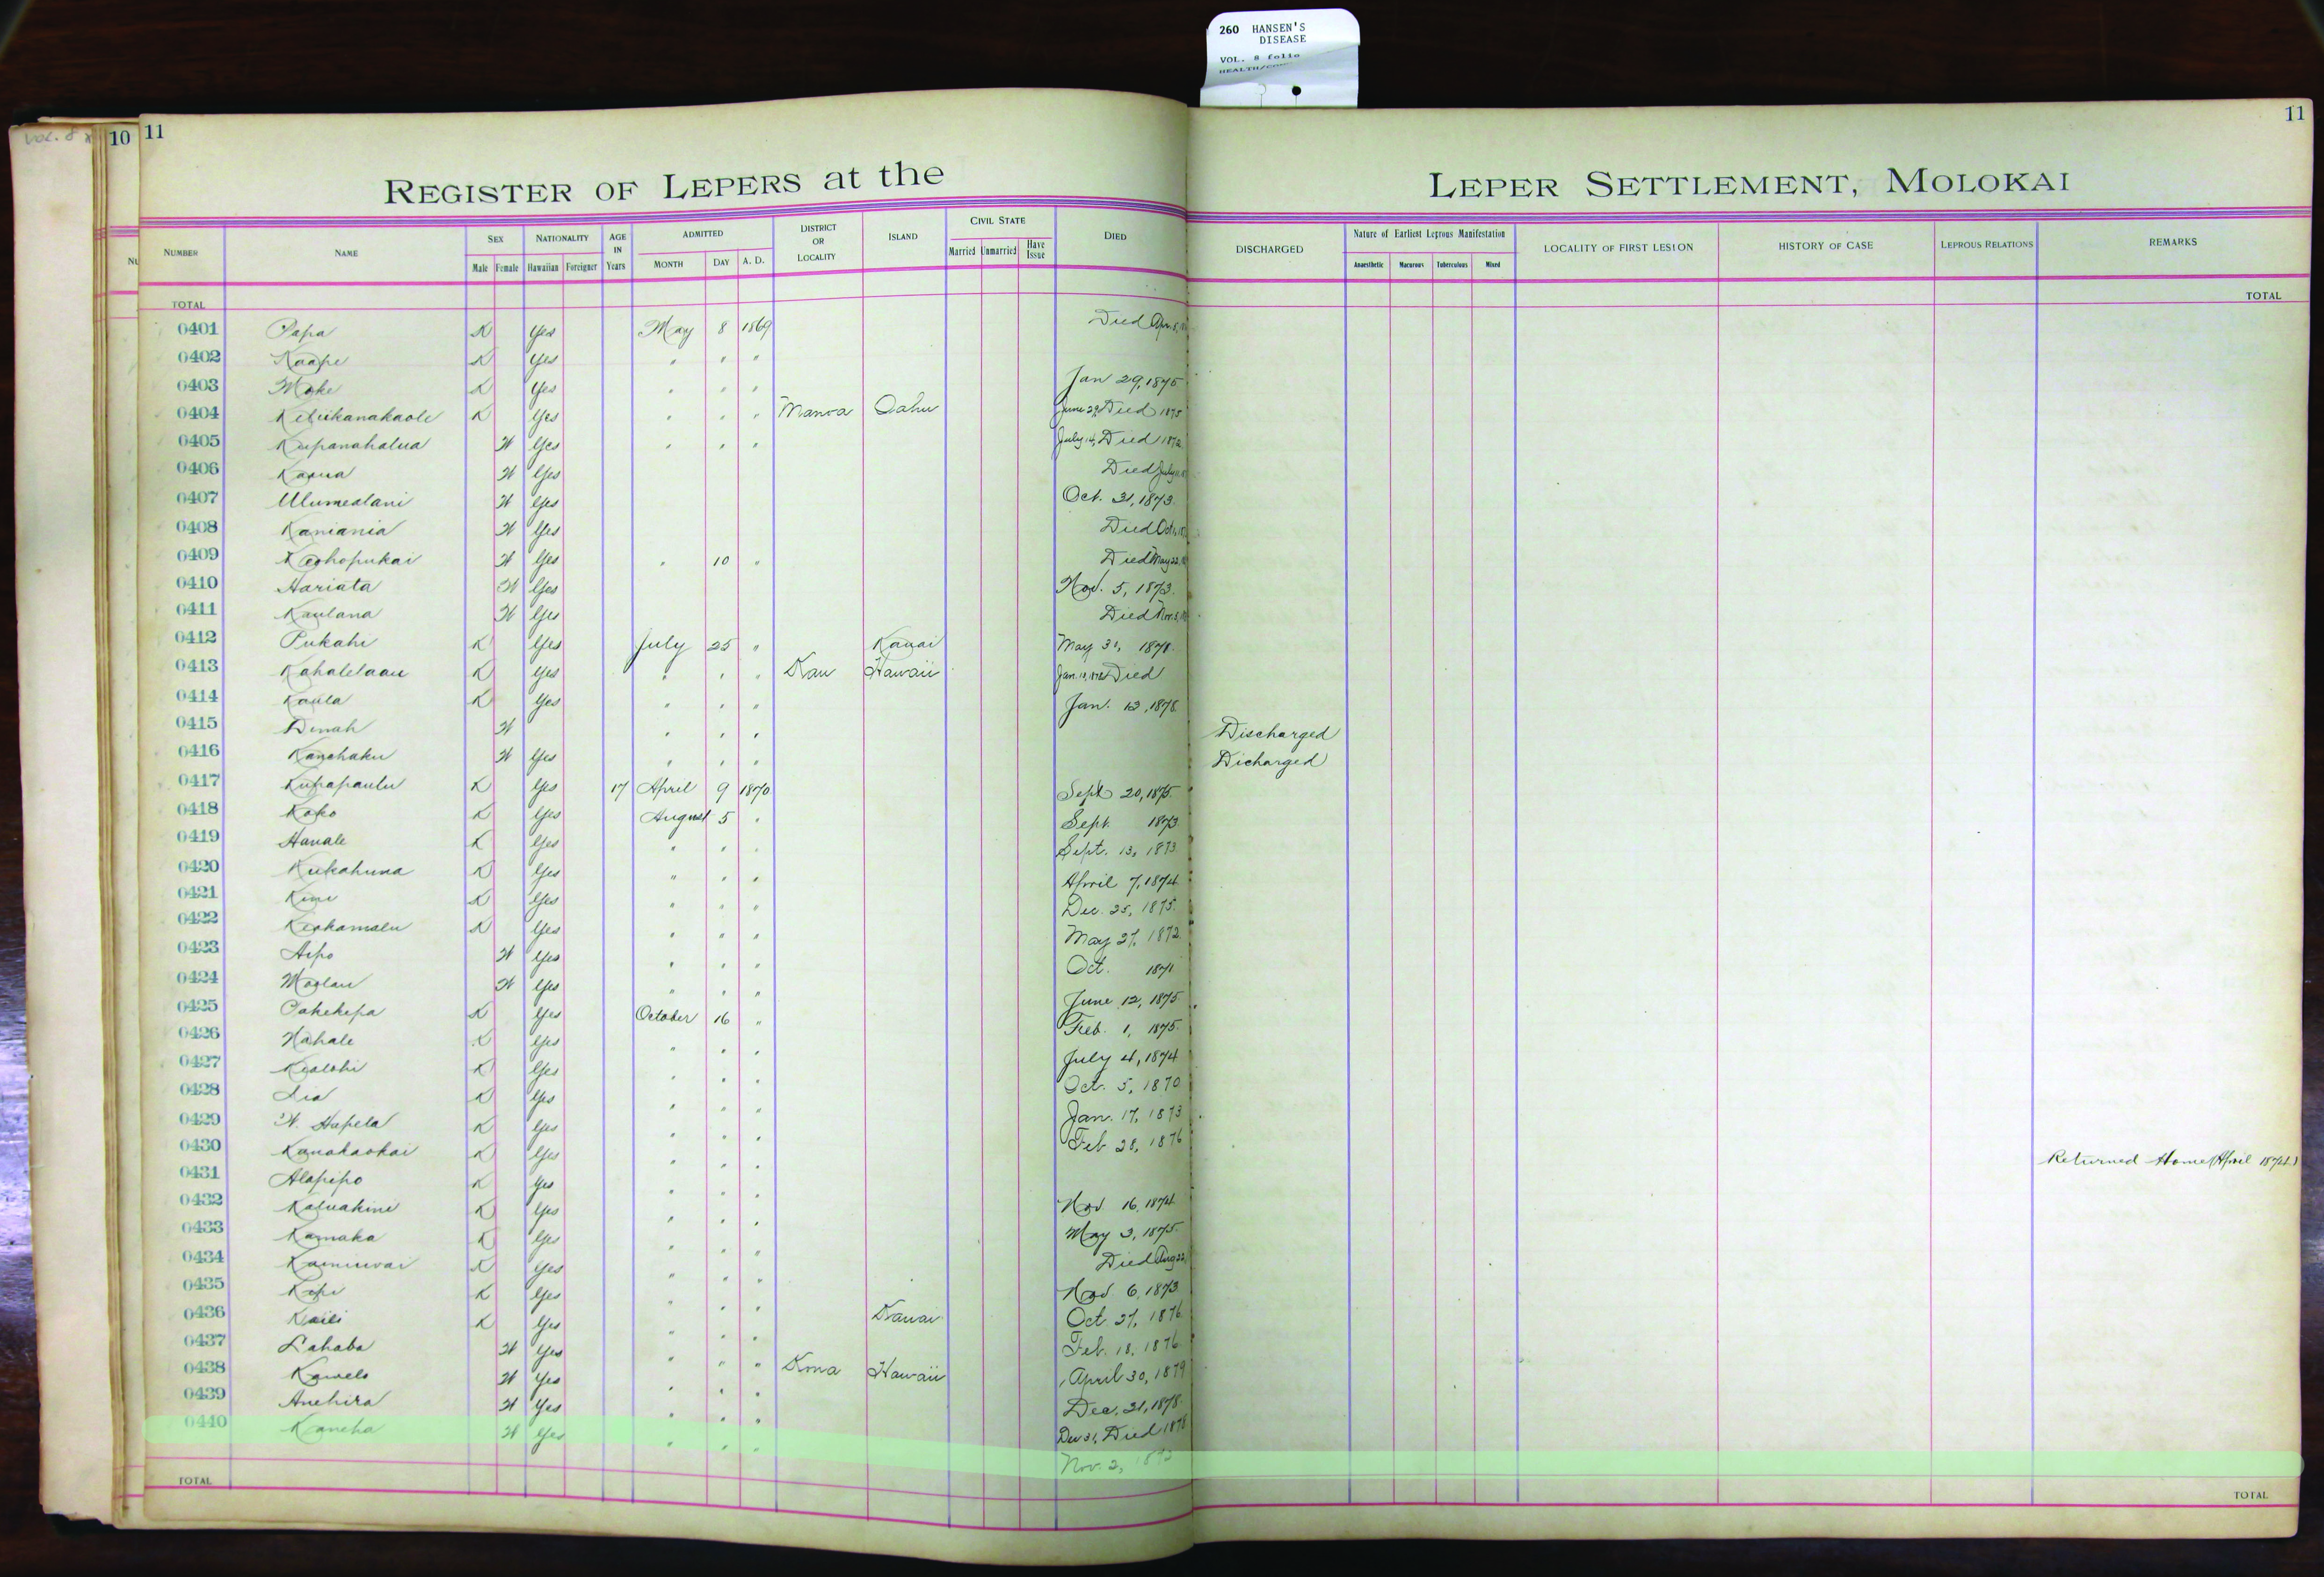 260 HANSEN'S
DISEASE
VOL. 8 folio
VOL. 8
10 11
11
REGISTER OF LEPERS at the LEPER SETTLEMENT, MOLOKAI
NUMBER NAME SEX Male Female NATIONALITY Hawaiian Foreigner AGE IN Years ADMITTED MONTH DAY A. D. DISTRICT OR LOCALITY ISLAND CIVIL STATE Married Unmarried Have Issue DIED DISCHARGED Nature of Earliest Leprous Manifestation Anaesthetic Macurous Tuberculous Mixed LOCALITY OF FIRST LESION HISTORY OF CASE LEPROUS RELATIONS REMARKS
TOTAL TOTAL
0401 Papa K Yes May 8 1869 Died Apr. 8,
0402 Kaape K Yes " " "
0403 Moke K Yes " " " Jan 29, 1875
0404 Keliikanakaole K Yes " " " Manoa Oahu June 29, Died 1875
0405 Kupanahalua W Yes " " " July 14, Died 1872
0406 Kaaua W Yes Died July
0407 Ulumealani W Yes Oct. 31, 1873.
0408 Kaniania W Yes Died Oct.
0409 Keohopukai W Yes " 10 " Died May 22,
0410 Hariata W Yes Nov. 5, 1873.
0411 Kaulana W Yes Died Nov. 3,
0412 Pukahi K Yes July 25 " Kauai May 31, 1871.
0413 Kahalelaau K Yes " " " Kau Hawaii Died
0414 Kaula K Yes " " " Jan. 12, 1878.
0415 Dinah W " " " Discharged
0416 Kanehaku W Yes " " " Dicharged
0417 Kupapaulu K Yes 17 April 9 1870 Sept 20, 1875.
0418 Koko K Yes August 5 " Sept. 1873
0419 Hanale K Yes " " " Sept. 13, 1873.
0420 Kukahuna K Yes " " " April 7, 1874
0421 Kini K Yes " " " Dec. 25, 1875.
0422 Keohamalu K Yes " " " May 27, 1872.
0423 Aipo W Yes " " " Oct. 1871
0424 Moolau W Yes " " " June 12, 1875
0425 Pahekepa K Yes October 16 " Feb. 1, 1875.
0426 Nahale K Yes " " " July 4, 1874
0427 Kealohi K Yes " " " Oct. 5, 1870
0428 Lia K Yes " " " Jan. 17, 1873
0429 W. Hapela K Yes " " " Feb 28, 1876
0430 Kanakaokai K Yes " " " Returned Home (April 1874.)
0431 Alapipo K Yes " " " Nov 16, 1874
0432 Kaluakini K Yes " " " May 3, 1875.
0433 Kamaka K Yes " " " Died Aug 22,
0434 Kaminwai K Yes " " " Nov. 6, 1873
0435 Kepi K Yes " " " Kauai Oct. 27, 1876.
0436 Kaili K Yes " " " Feb. 18, 1876.
0437 Lahaba W Yes " " " Kona Hawaii April 30, 1879
0438 Kawelo W Yes " " " Dec. 31, 1878.
0439 Anehira W Yes " " " Dec 31, Died 1878
0440 Kaneha W Yes " " " Nov. 2, 1872
TOTAL TOTAL